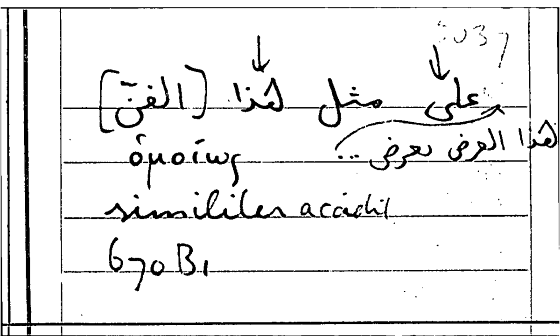 5037
على مثل هذا [الفنّ]
هذا العرض يعرض ...
ὁμοίως
similiter accidit
670B1